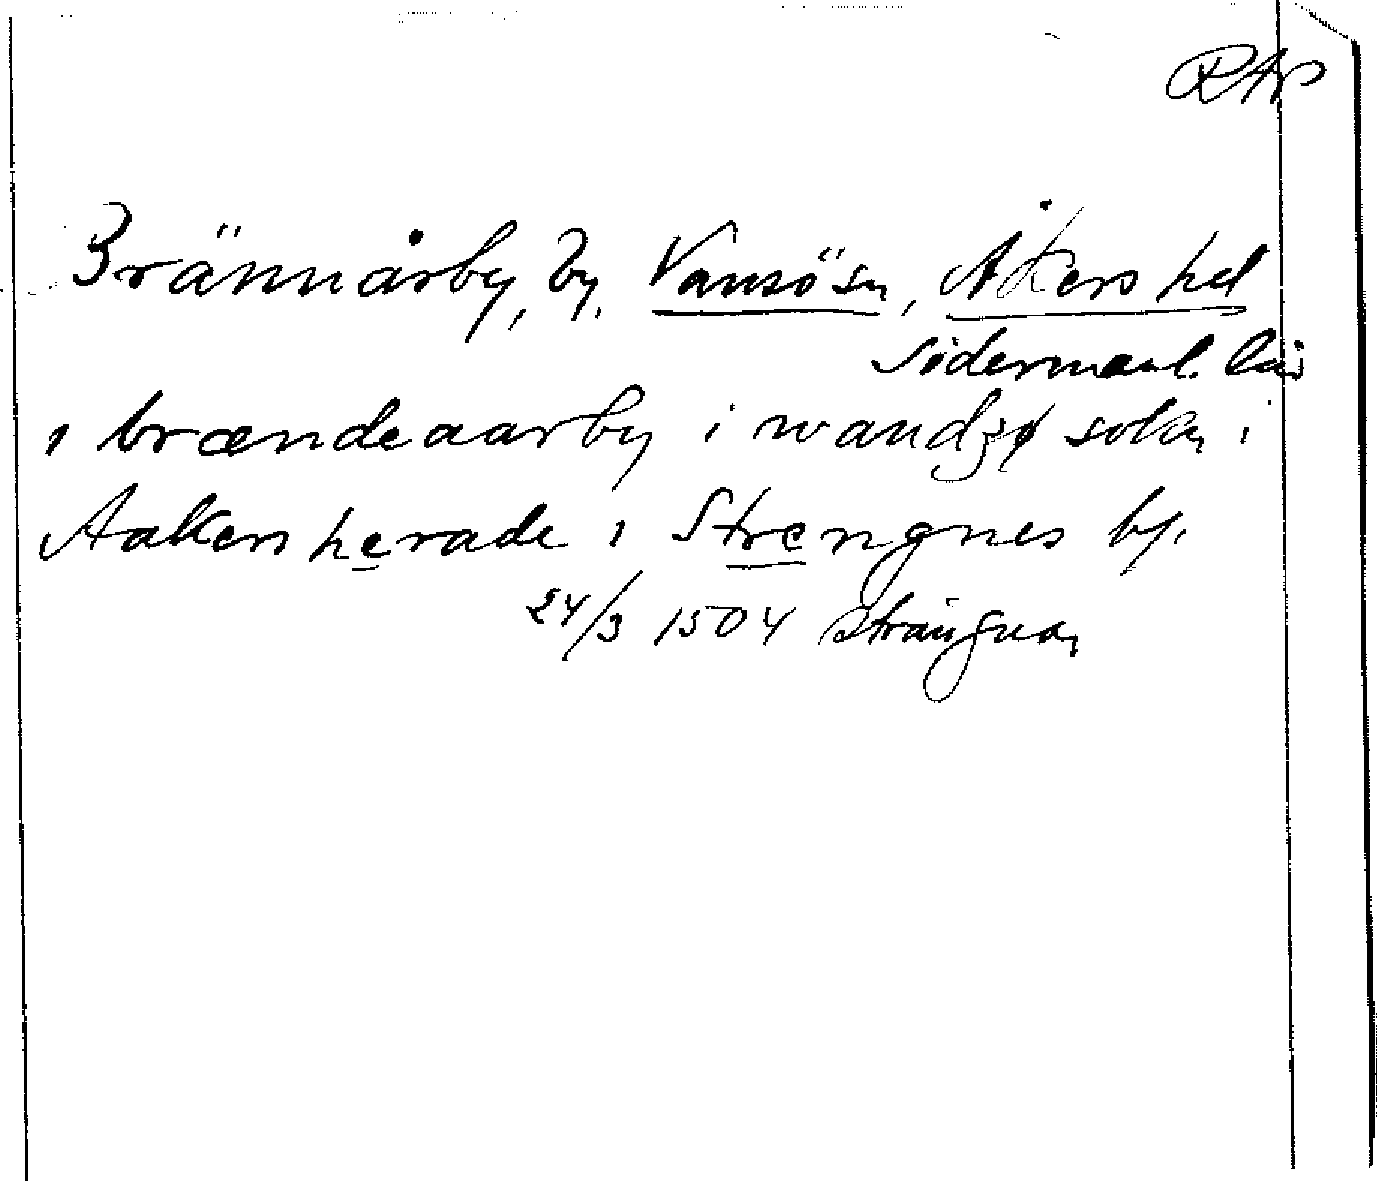 RAp
Brännårby, by, Vansö sn, Åkers hd
Södermanl. län
i brændeaarby i wandzø sokn i
Aakers herade i Strengnes bp.
24/3 1504 Strängnäs